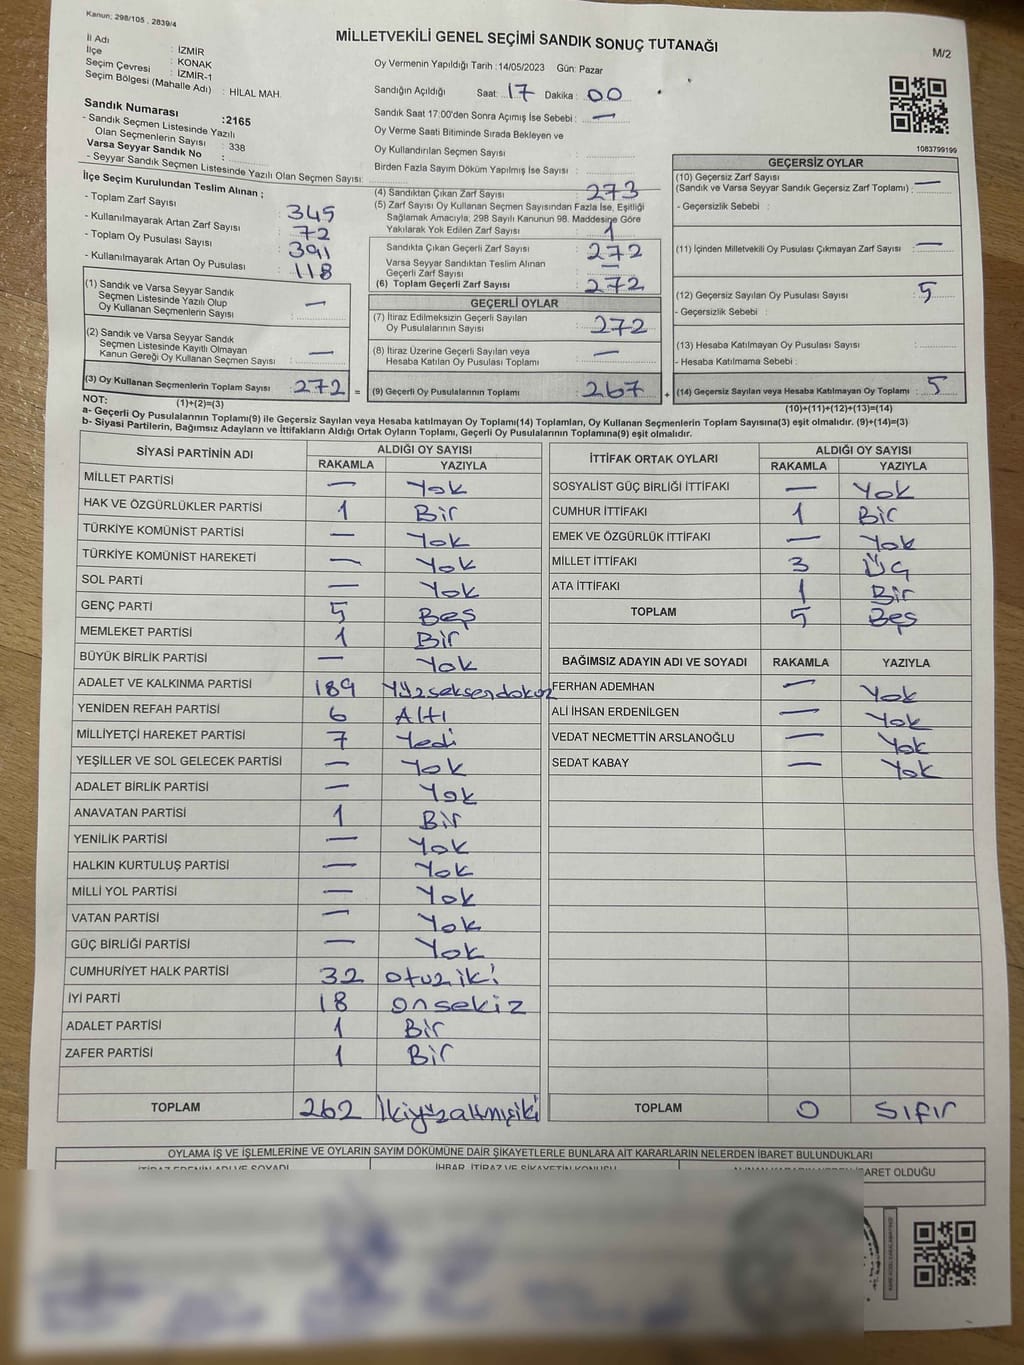 Kanun: 298/105 , 2839/4
MİLLETVEKİLİ GENEL SEÇİMİ SANDIK SONUÇ TUTANAĞI
M/2
İl Adı : İZMİR
İlçe : KONAK
Seçim Çevresi : İZMİR-1
Seçim Bölgesi (Mahalle Adı) : HİLAL MAH.
Sandık Numarası :2165
- Sandık Seçmen Listesinde Yazılı
Olan Seçmenlerin Sayısı : 338
Varsa Seyyar Sandık No :
- Seyyar Sandık Seçmen Listesinde Yazılı Olan Seçmen Sayısı:
Oy Vermenin Yapıldığı Tarih :14/05/2023 Gün: Pazar
Sandığın Açıldığı Saat: 17 Dakika : 00
Sandık Saat 17:00'den Sonra Açımış İse Sebebi : —
Oy Verme Saati Bitiminde Sırada Bekleyen ve
Oy Kullandırılan Seçmen Sayısı :
Birden Fazla Sayım Döküm Yapılmış İse Sayısı :
1083799199
İlçe Seçim Kurulundan Teslim Alınan ;
- Toplam Zarf Sayısı : 345
- Kullanılmayarak Artan Zarf Sayısı : 72
- Toplam Oy Pusulası Sayısı : 391
- Kullanılmayarak Artan Oy Pusulası : 118
(1) Sandık ve Varsa Seyyar Sandık
Seçmen Listesinde Yazılı Olup
Oy Kullanan Seçmenlerin Sayısı : —
(2) Sandık ve Varsa Seyyar Sandık
Seçmen Listesinde Kayıtlı Olmayan
Kanun Gereği Oy Kullanan Seçmen Sayısı : —
(3) Oy Kullanan Seçmenlerin Toplam Sayısı : 272 =
(1)+(2)=(3)
(4) Sandıktan Çıkan Zarf Sayısı : 273
(5) Zarf Sayısı Oy Kullanan Seçmen Sayısından Fazla İse, Eşitliği
Sağlamak Amacıyla; 298 Sayılı Kanunun 98. Maddesine Göre
Yakılarak Yok Edilen Zarf Sayısı : 1
Sandıkta Çıkan Geçerli Zarf Sayısı : 272
Varsa Seyyar Sandıktan Teslim Alınan
Geçerli Zarf Sayısı : —
(6) Toplam Geçerli Zarf Sayısı : 272
GEÇERLİ OYLAR
(7) İtiraz Edilmeksizin Geçerli Sayılan
Oy Pusulalarının Sayısı : 272
(8) İtiraz Üzerine Geçerli Sayılan veya
Hesaba Katılan Oy Pusulası Toplamı : —
(9) Geçerli Oy Pusulalarının Toplamı : 267 +
GEÇERSİZ OYLAR
(10) Geçersiz Zarf Sayısı
(Sandık ve Varsa Seyyar Sandık Geçersiz Zarf Toplamı) : —
- Geçersizlik Sebebi :
(11) İçinden Milletvekili Oy Pusulası Çıkmayan Zarf Sayısı : —
(12) Geçersiz Sayılan Oy Pusulası Sayısı : 5
- Geçersizlik Sebebi :
(13) Hesaba Katılmayan Oy Pusulası Sayısı :
- Hesaba Katılmama Sebebi :
(14) Geçersiz Sayılan veya Hesaba Katılmayan Oy Toplamı : 5
(10)+(11)+(12)+(13)=(14)
NOT:
a- Geçerli Oy Pusulalarının Toplamı(9) ile Geçersiz Sayılan veya Hesaba katılmayan Oy Toplamı(14) Toplamları, Oy Kullanan Seçmenlerin Toplam Sayısına(3) eşit olmalıdır. (9)+(14)=(3)
b- Siyasi Partilerin, Bağımsız Adayların ve İttifakların Aldığı Ortak Oyların Toplamı, Geçerli Oy Pusulalarının Toplamına(9) eşit olmalıdır.
SİYASİ PARTİNİN ADI ALDIĞI OY SAYISI
RAKAMLA YAZIYLA
MİLLET PARTİSİ — Yok
HAK VE ÖZGÜRLÜKLER PARTİSİ 1 Bir
TÜRKİYE KOMÜNİST PARTİSİ — Yok
TÜRKİYE KOMÜNİST HAREKETİ — Yok
SOL PARTİ — Yok
GENÇ PARTİ 5 Beş
MEMLEKET PARTİSİ 1 Bir
BÜYÜK BİRLİK PARTİSİ — Yok
ADALET VE KALKINMA PARTİSİ 189 Yüzseksendokuz
YENİDEN REFAH PARTİSİ 6 Altı
MİLLİYETÇİ HAREKET PARTİSİ 7 Yedi
YEŞİLLER VE SOL GELECEK PARTİSİ — Yok
ADALET BİRLİK PARTİSİ — Yok
ANAVATAN PARTİSİ 1 Bir
YENİLİK PARTİSİ — Yok
HALKIN KURTULUŞ PARTİSİ — Yok
MİLLİ YOL PARTİSİ — Yok
VATAN PARTİSİ — Yok
GÜÇ BİRLİĞİ PARTİSİ — Yok
CUMHURİYET HALK PARTİSİ 32 otuziki
İYİ PARTİ 18 onsekiz
ADALET PARTİSİ 1 Bir
ZAFER PARTİSİ 1 Bir
TOPLAM 262 İkiyüzaltmışiki
İTTİFAK ORTAK OYLARI ALDIĞI OY SAYISI
RAKAMLA YAZIYLA
SOSYALİST GÜÇ BİRLİĞİ İTTİFAKI — Yok
CUMHUR İTTİFAKI 1 Bir
EMEK VE ÖZGÜRLÜK İTTİFAKI — Yok
MİLLET İTTİFAKI 3 Üç
ATA İTTİFAKI 1 Bir
TOPLAM 5 Beş
BAĞIMSIZ ADAYIN ADI VE SOYADI RAKAMLA YAZIYLA
FERHAN ADEMHAN — Yok
ALİ İHSAN ERDENİLGEN — Yok
VEDAT NECMETTİN ARSLANOĞLU — Yok
SEDAT KABAY — Yok
TOPLAM 0 Sıfır
OYLAMA İŞ VE İŞLEMLERİNE VE OYLARIN SAYIM DÖKÜMÜNE DAİR ŞİKAYETLERLE BUNLARA AİT KARARLARIN NELERDEN İBARET BULUNDUKLARI